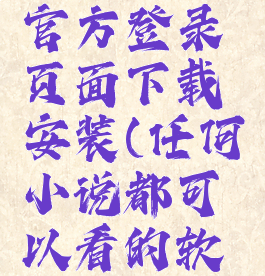 官方登录
页面下载
安装(任何
小说都可
以看的软